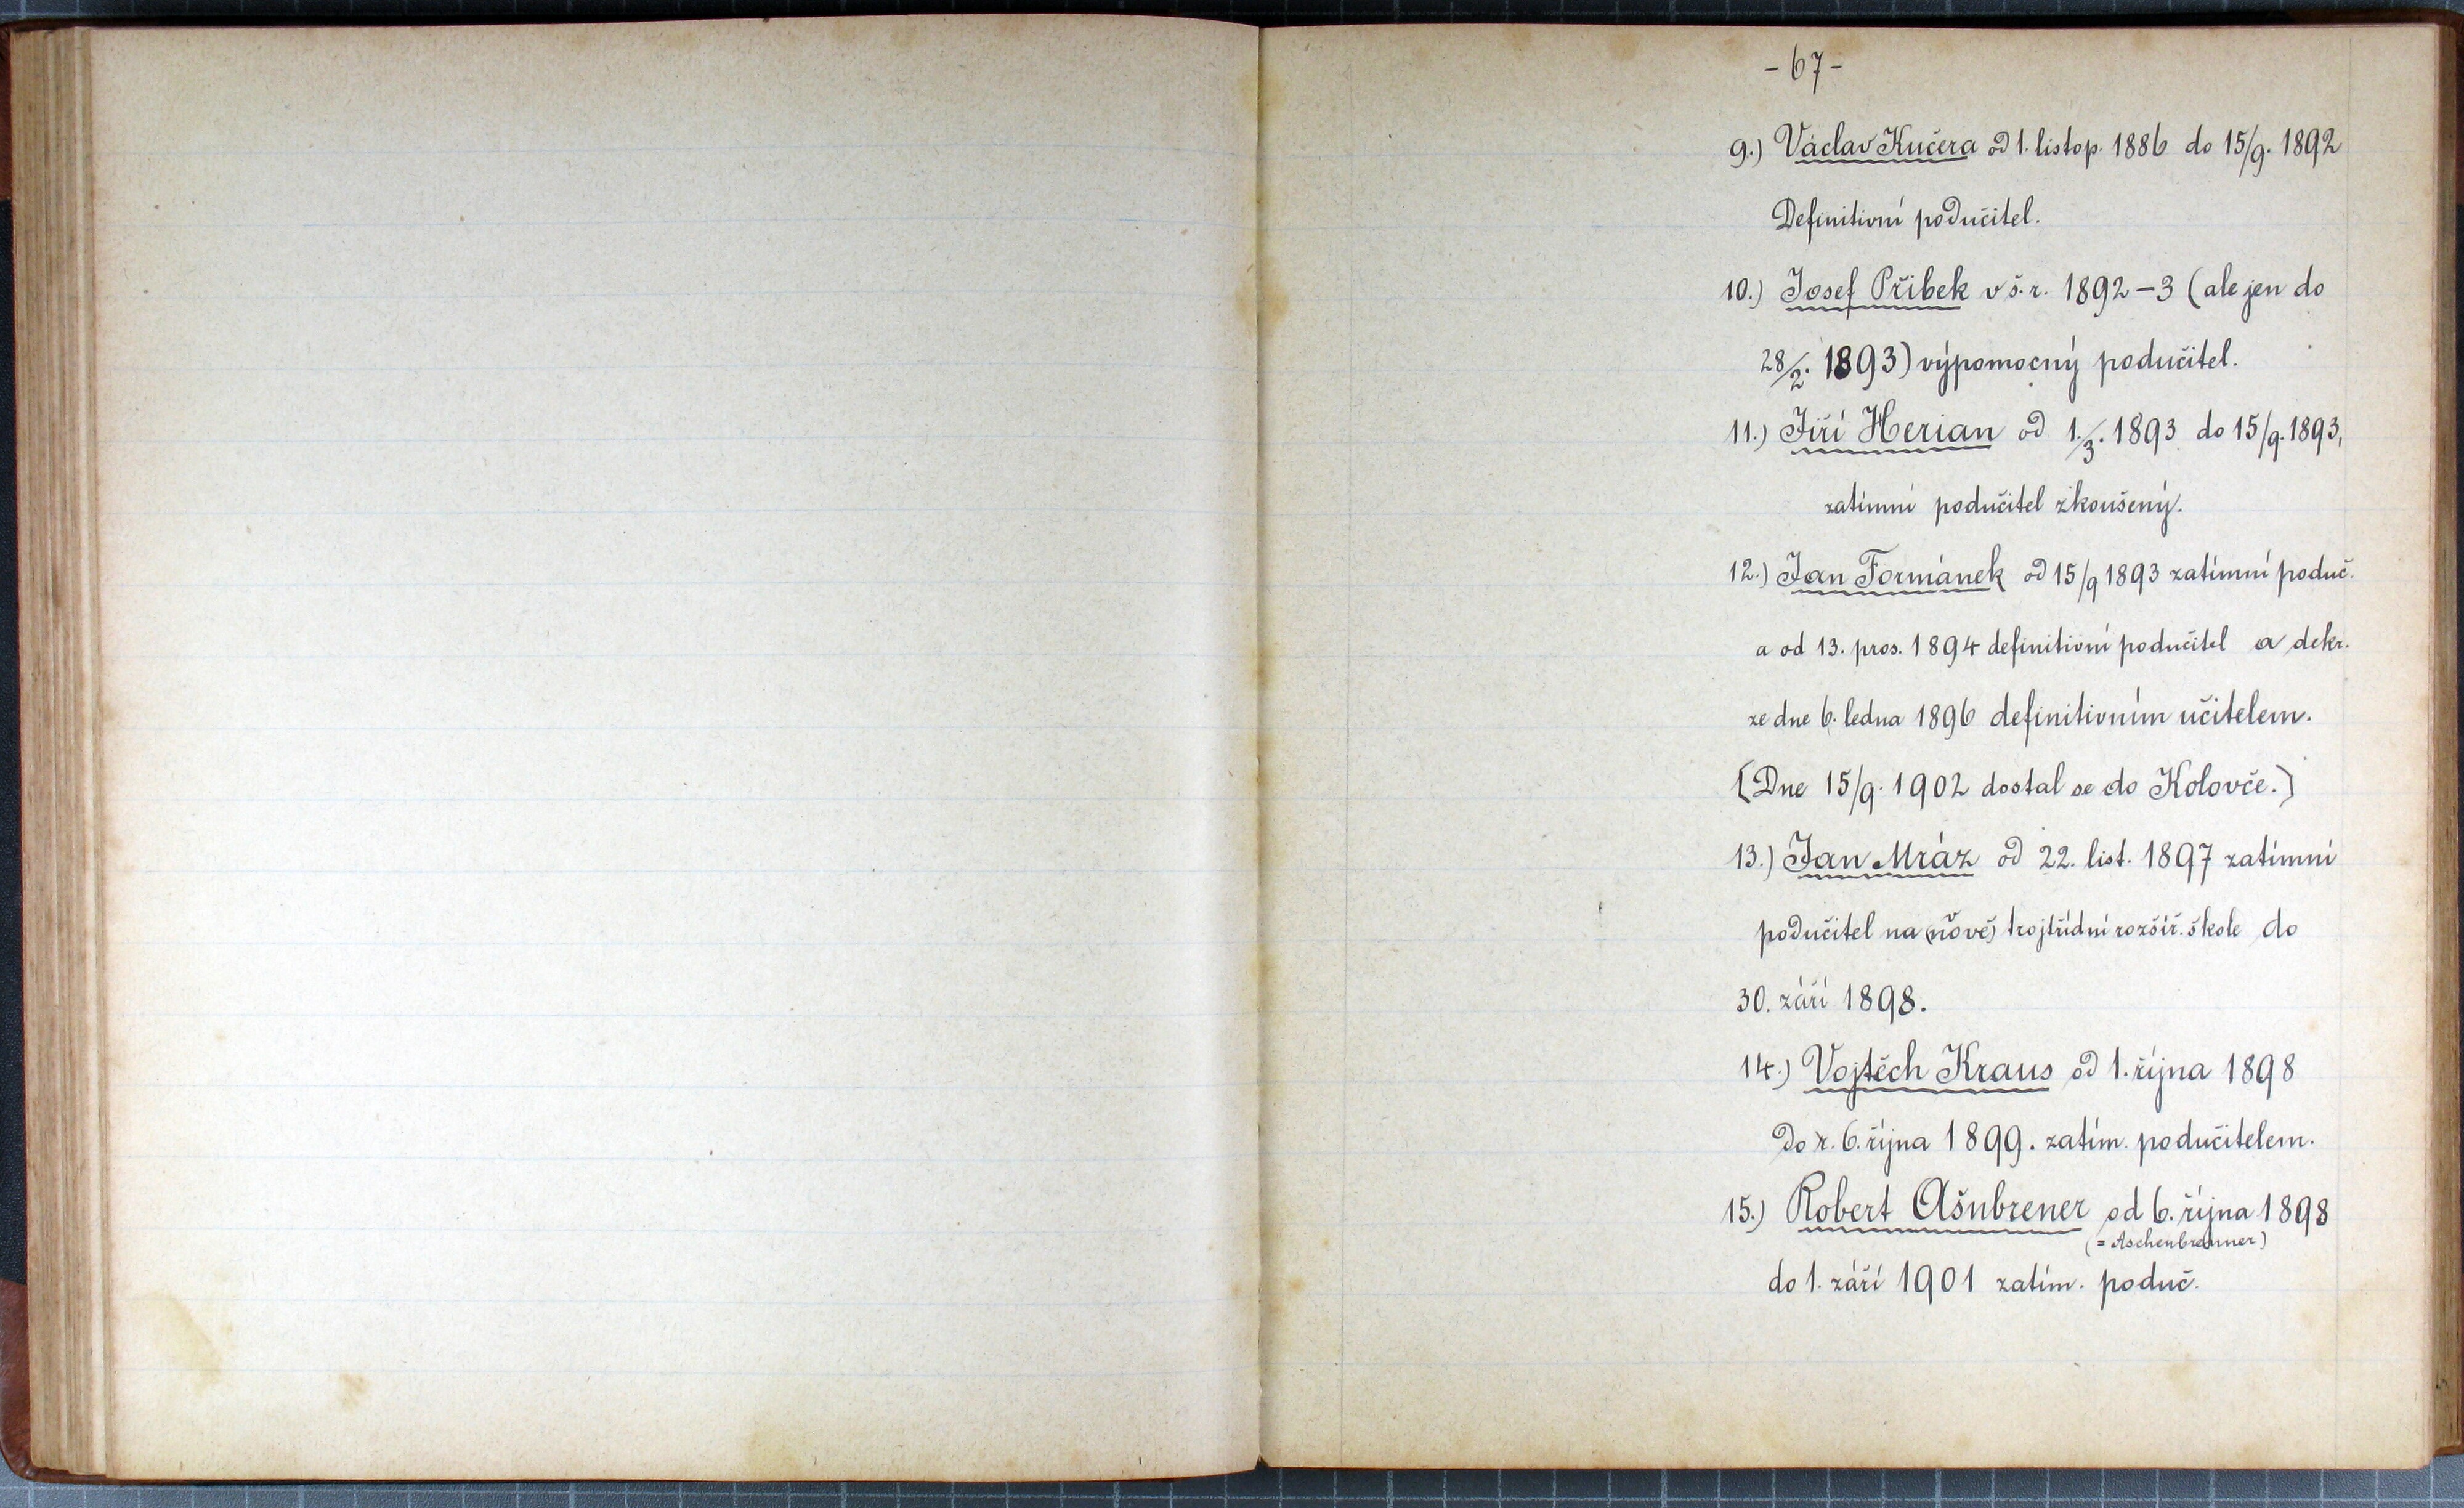 - 67 -
9.) Václav Kučera od 1. listop. 1886 do 15/9. 1892
Definitivní podučitel.
10.) Josef Přibek v š. r. 1892-3 (ale jen do
28/2. 1893) výpomocný podučitel.
11.) Jiří Herian od 1./3. 1893 do 15/9. 1893,
zatímní podučitel zkoušený.
12.) Jan Formánek od 15/9 1893 zatímní poduč.
a od 13. pros. 1894 definitivní podučitel a dekr.
ze dne 6. ledna 1896 definitivním učitelem.
[Dne 15/9. 1902 dostal se do Kolovče.]
13.) Jan Mráz od 22. list. 1897 zatímní
podučitel na (nově) trojtřídní rozšíř. škole do
30. září 1898.
14.) Vojtěch Kraus od 1. října 1898
do r. 6. října 1899. zatím. podučitelem.
15.) Robert Ašnbrener od 6. října 1898
(= Aschenbrenner)
do 1. září 1901 zatím. poduč.